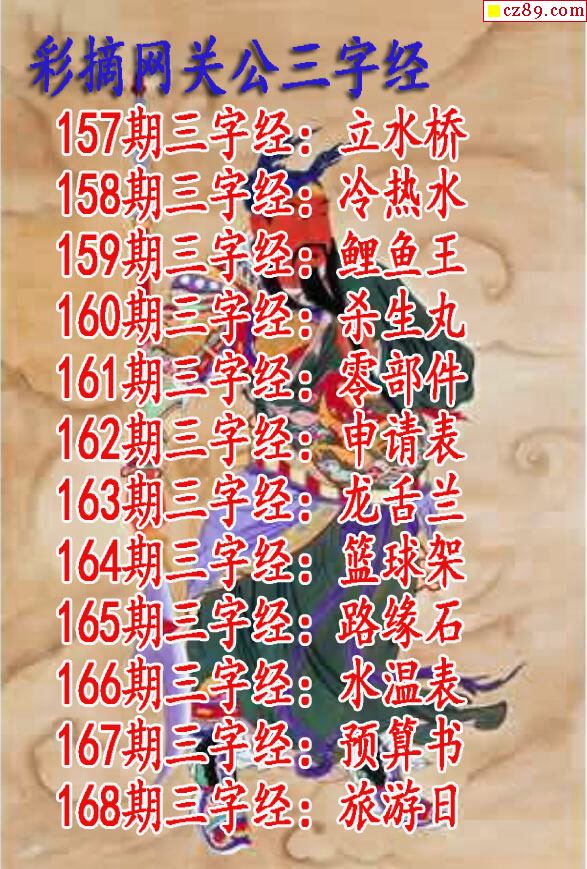 cz89.com
彩摘网关公三字经
157期三字经：立水桥
158期三字经：冷热水
159期三字经：鲤鱼王
160期三字经：杀生丸
161期三字经：零部件
162期三字经：申请表
163期三字经：龙舌兰
164期三字经：篮球架
165期三字经：路缘石
166期三字经：水温表
167期三字经：预算书
168期三字经：旅游日